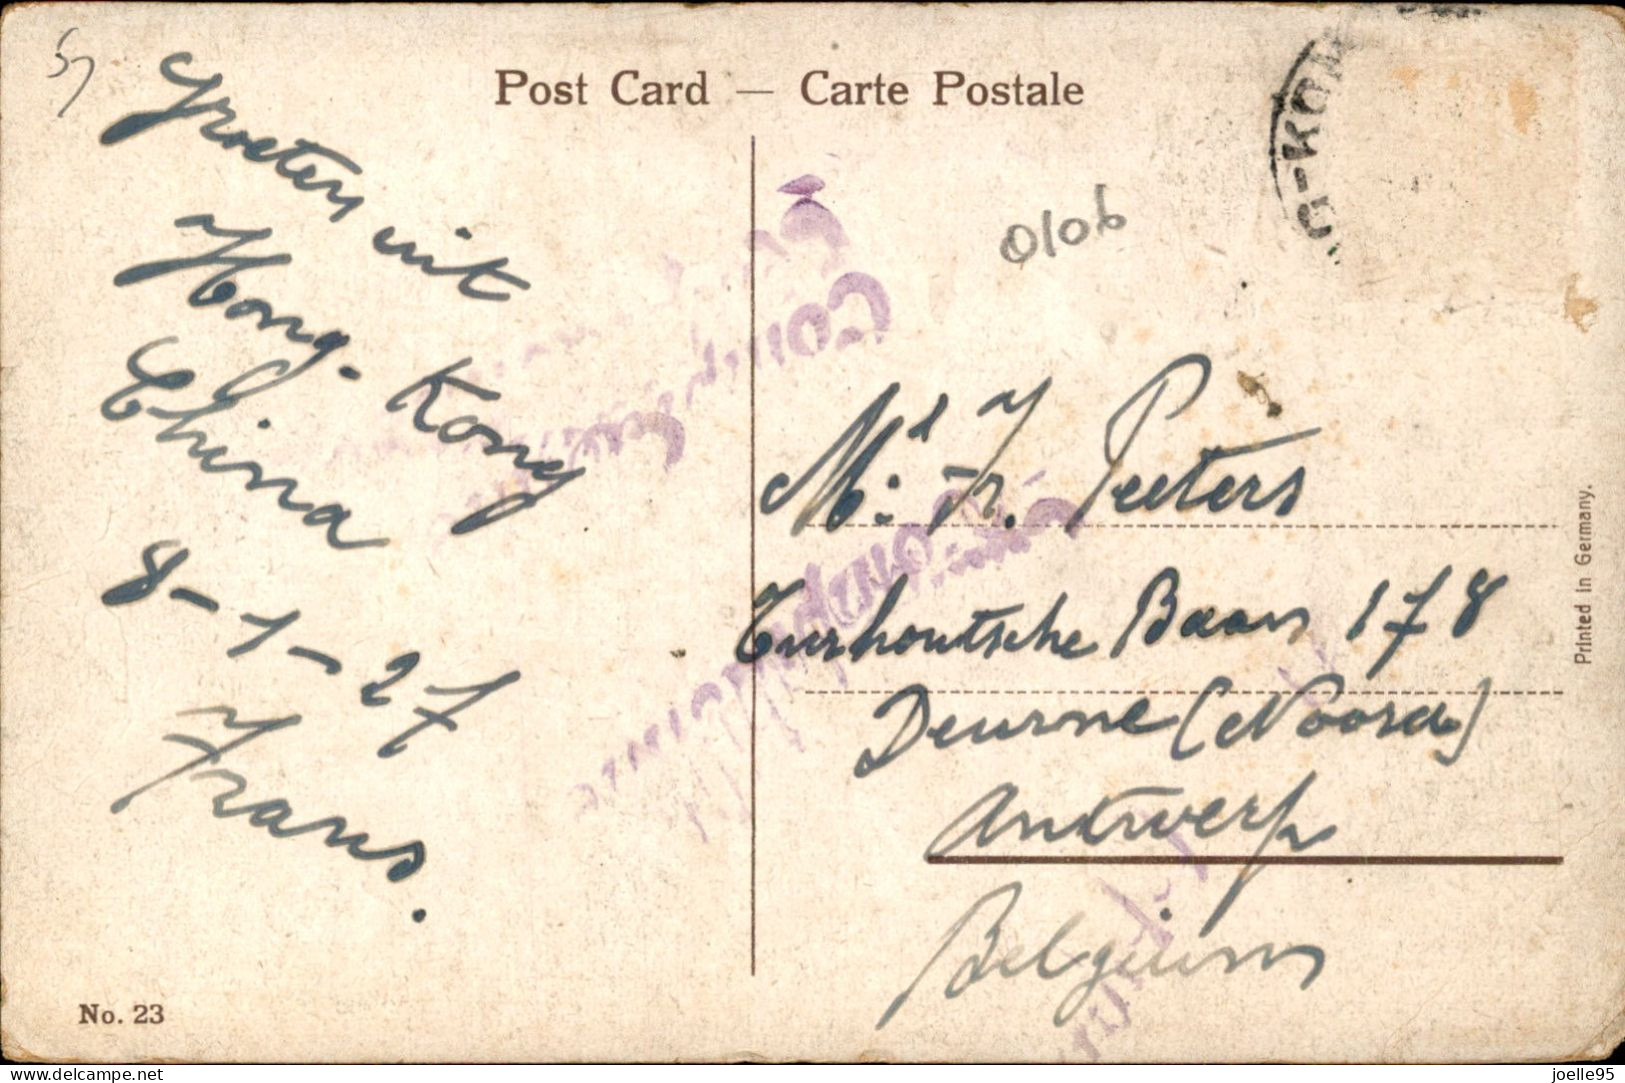 Post Card — Carte Postale
57
Groeten uit
Hong-Kong
China
8-1-27
Frans.
No. 23
G-KONG
0106
Mr. Fr. Peeters
Turnhoutsche Baan 178
Deurne (Noord)
Antwerp
Belgium
Printed in Germany.
delcampe.net
joelle95